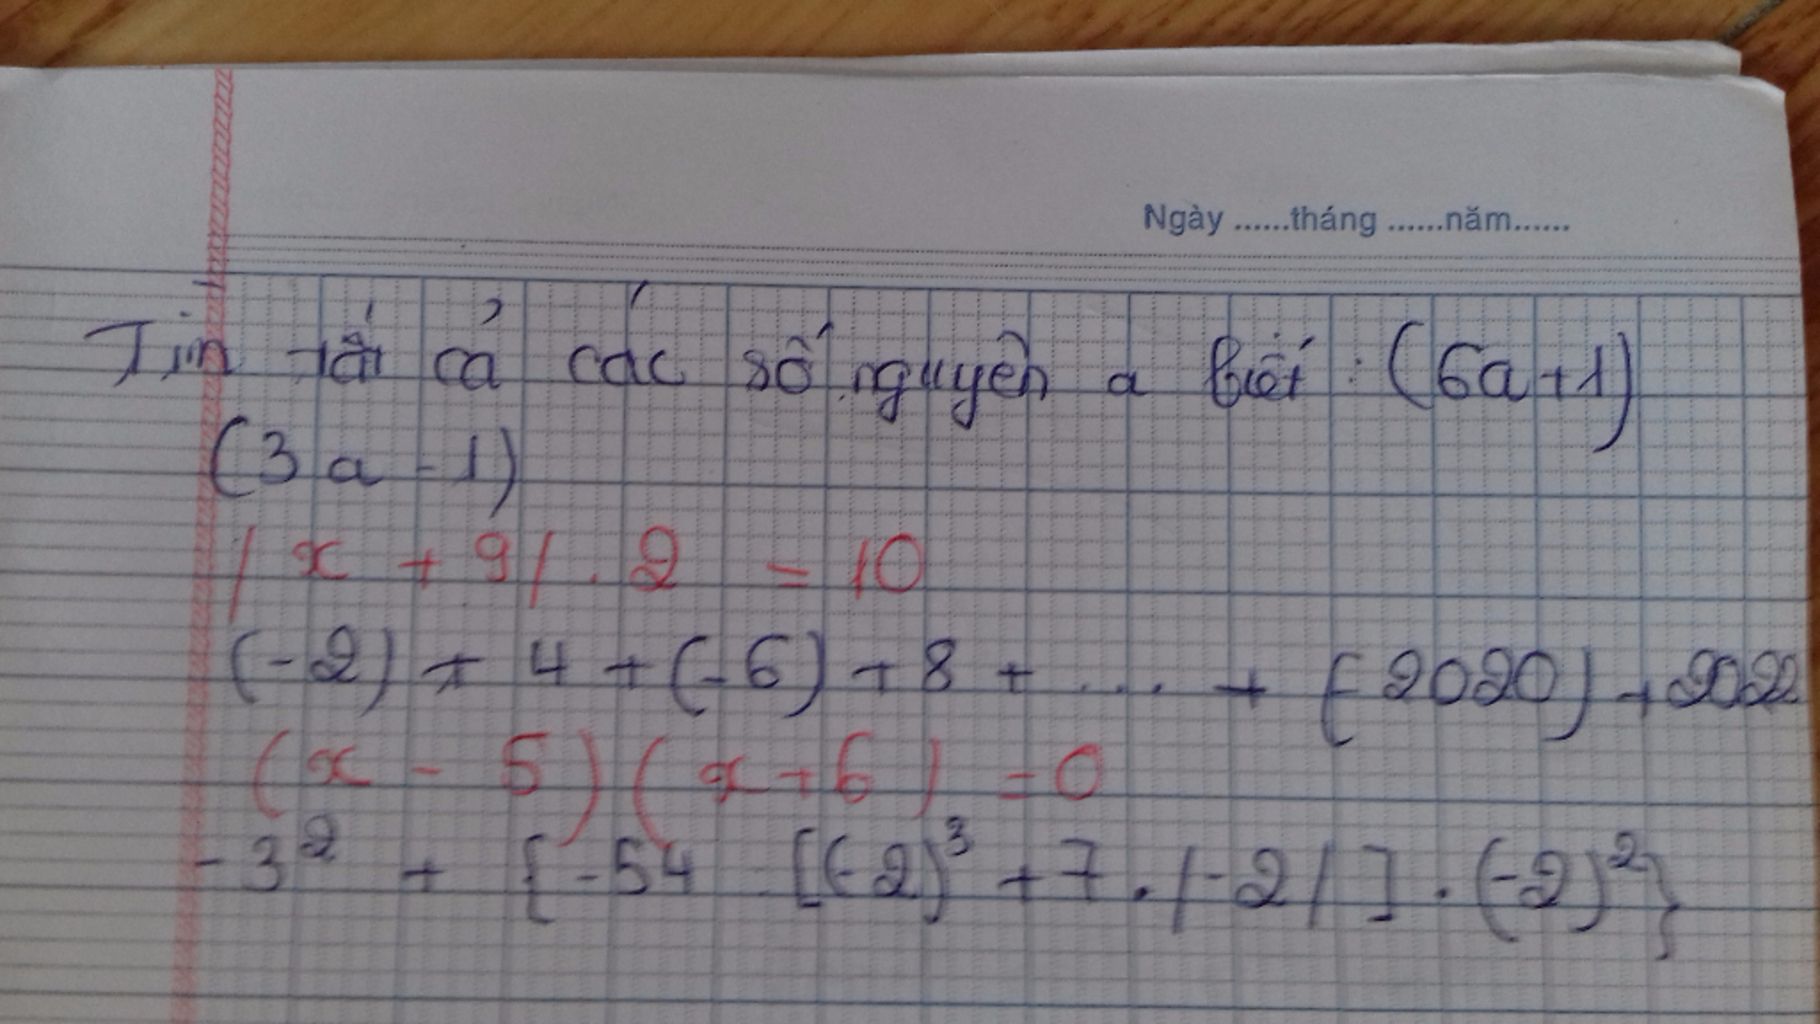 Ngày ......tháng ......năm......
Tìm tất cả các số nguyên a biết : (6a+1)
(3a - 1)
|x + 9| . 2 = 10
(-2) + 4 + (-6) + 8 + .... + (-2020) + 2022
(x - 5)(x+6) = 0
-3² + {-54 [(-2)³ + 7 . |-2|] . (-2)²}